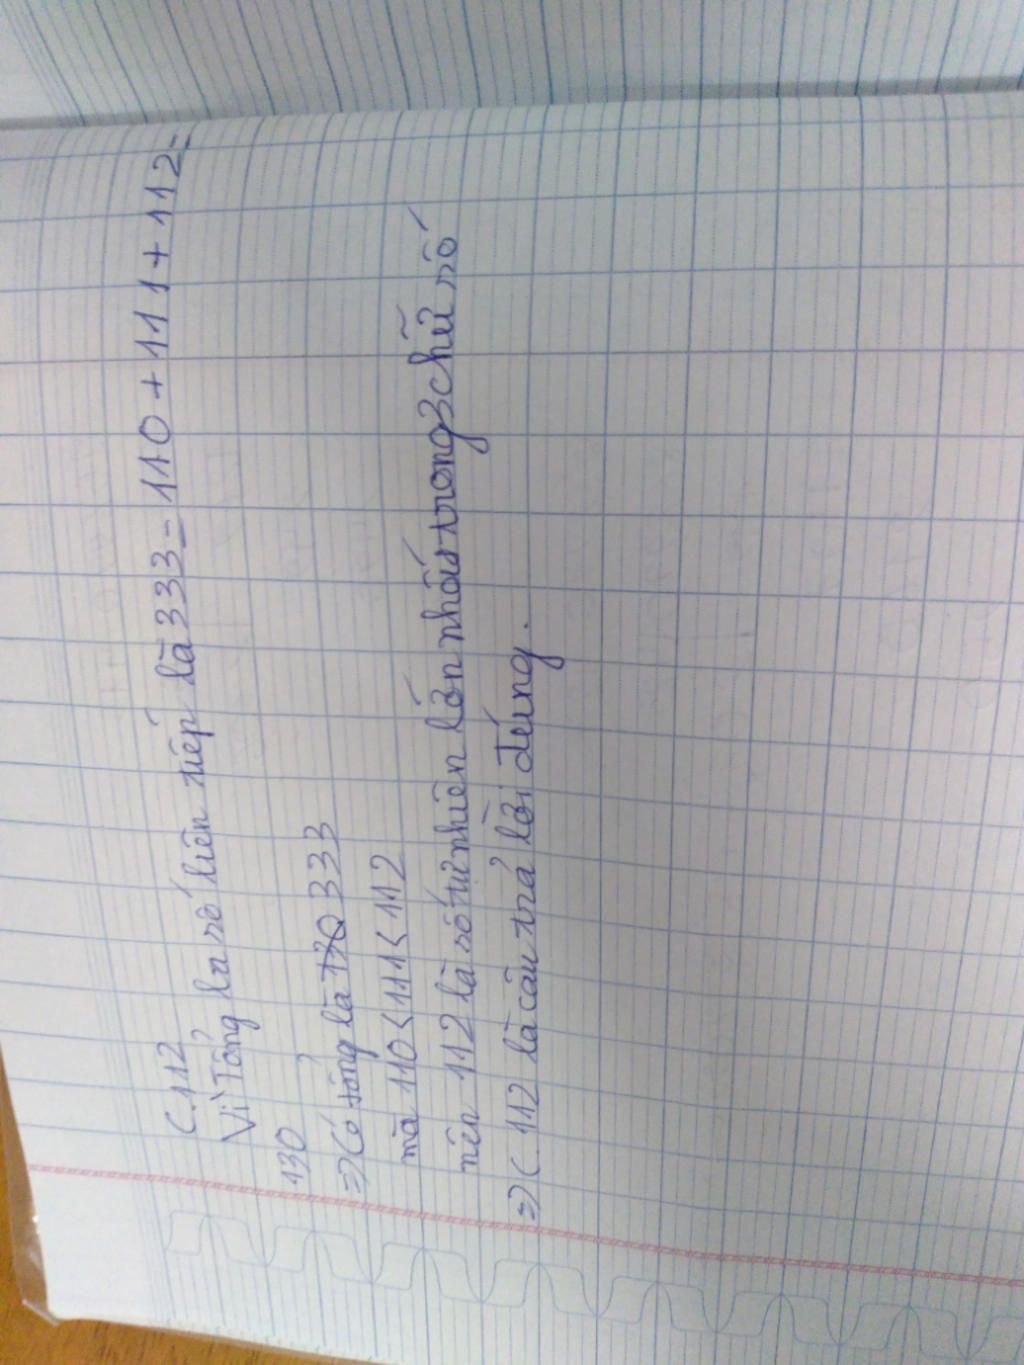 C. 112
Vì Tổng ba số liên tiếp là 333 = 110 + 111 + 112 =
130
=> Có tổng là 130 333
mà 110 < 111 < 112
nên 112 là số tự nhiên lớn nhất trong 3 chữ số
=> C. 112 là câu trả lời đúng.